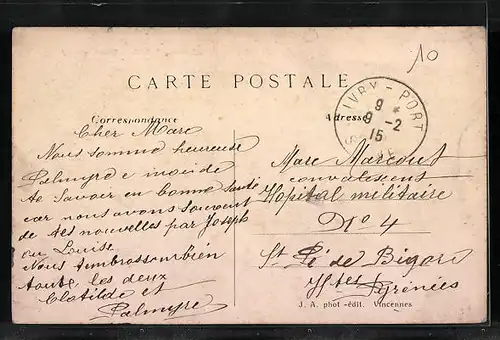 10
CARTE POSTALE
Correspondance
Adresse
IVRY - PORT
9 *
9 - 2
15
SEINE
Cher Marc
Nous somme heureuse
Palmyre e moi de
te Savoir en bonne Santé
car nous avons Souvent
de tes nouvelles par Joseph
ou Louise
Nous tembrossombién
toute les deux
Clotilde et
Palmyre
Marc Marcout
convalescens
Hôpital militaire
No 4
St Pé de Bigore
Htes Pyrénées
J. A. phot-édit. Vincennes